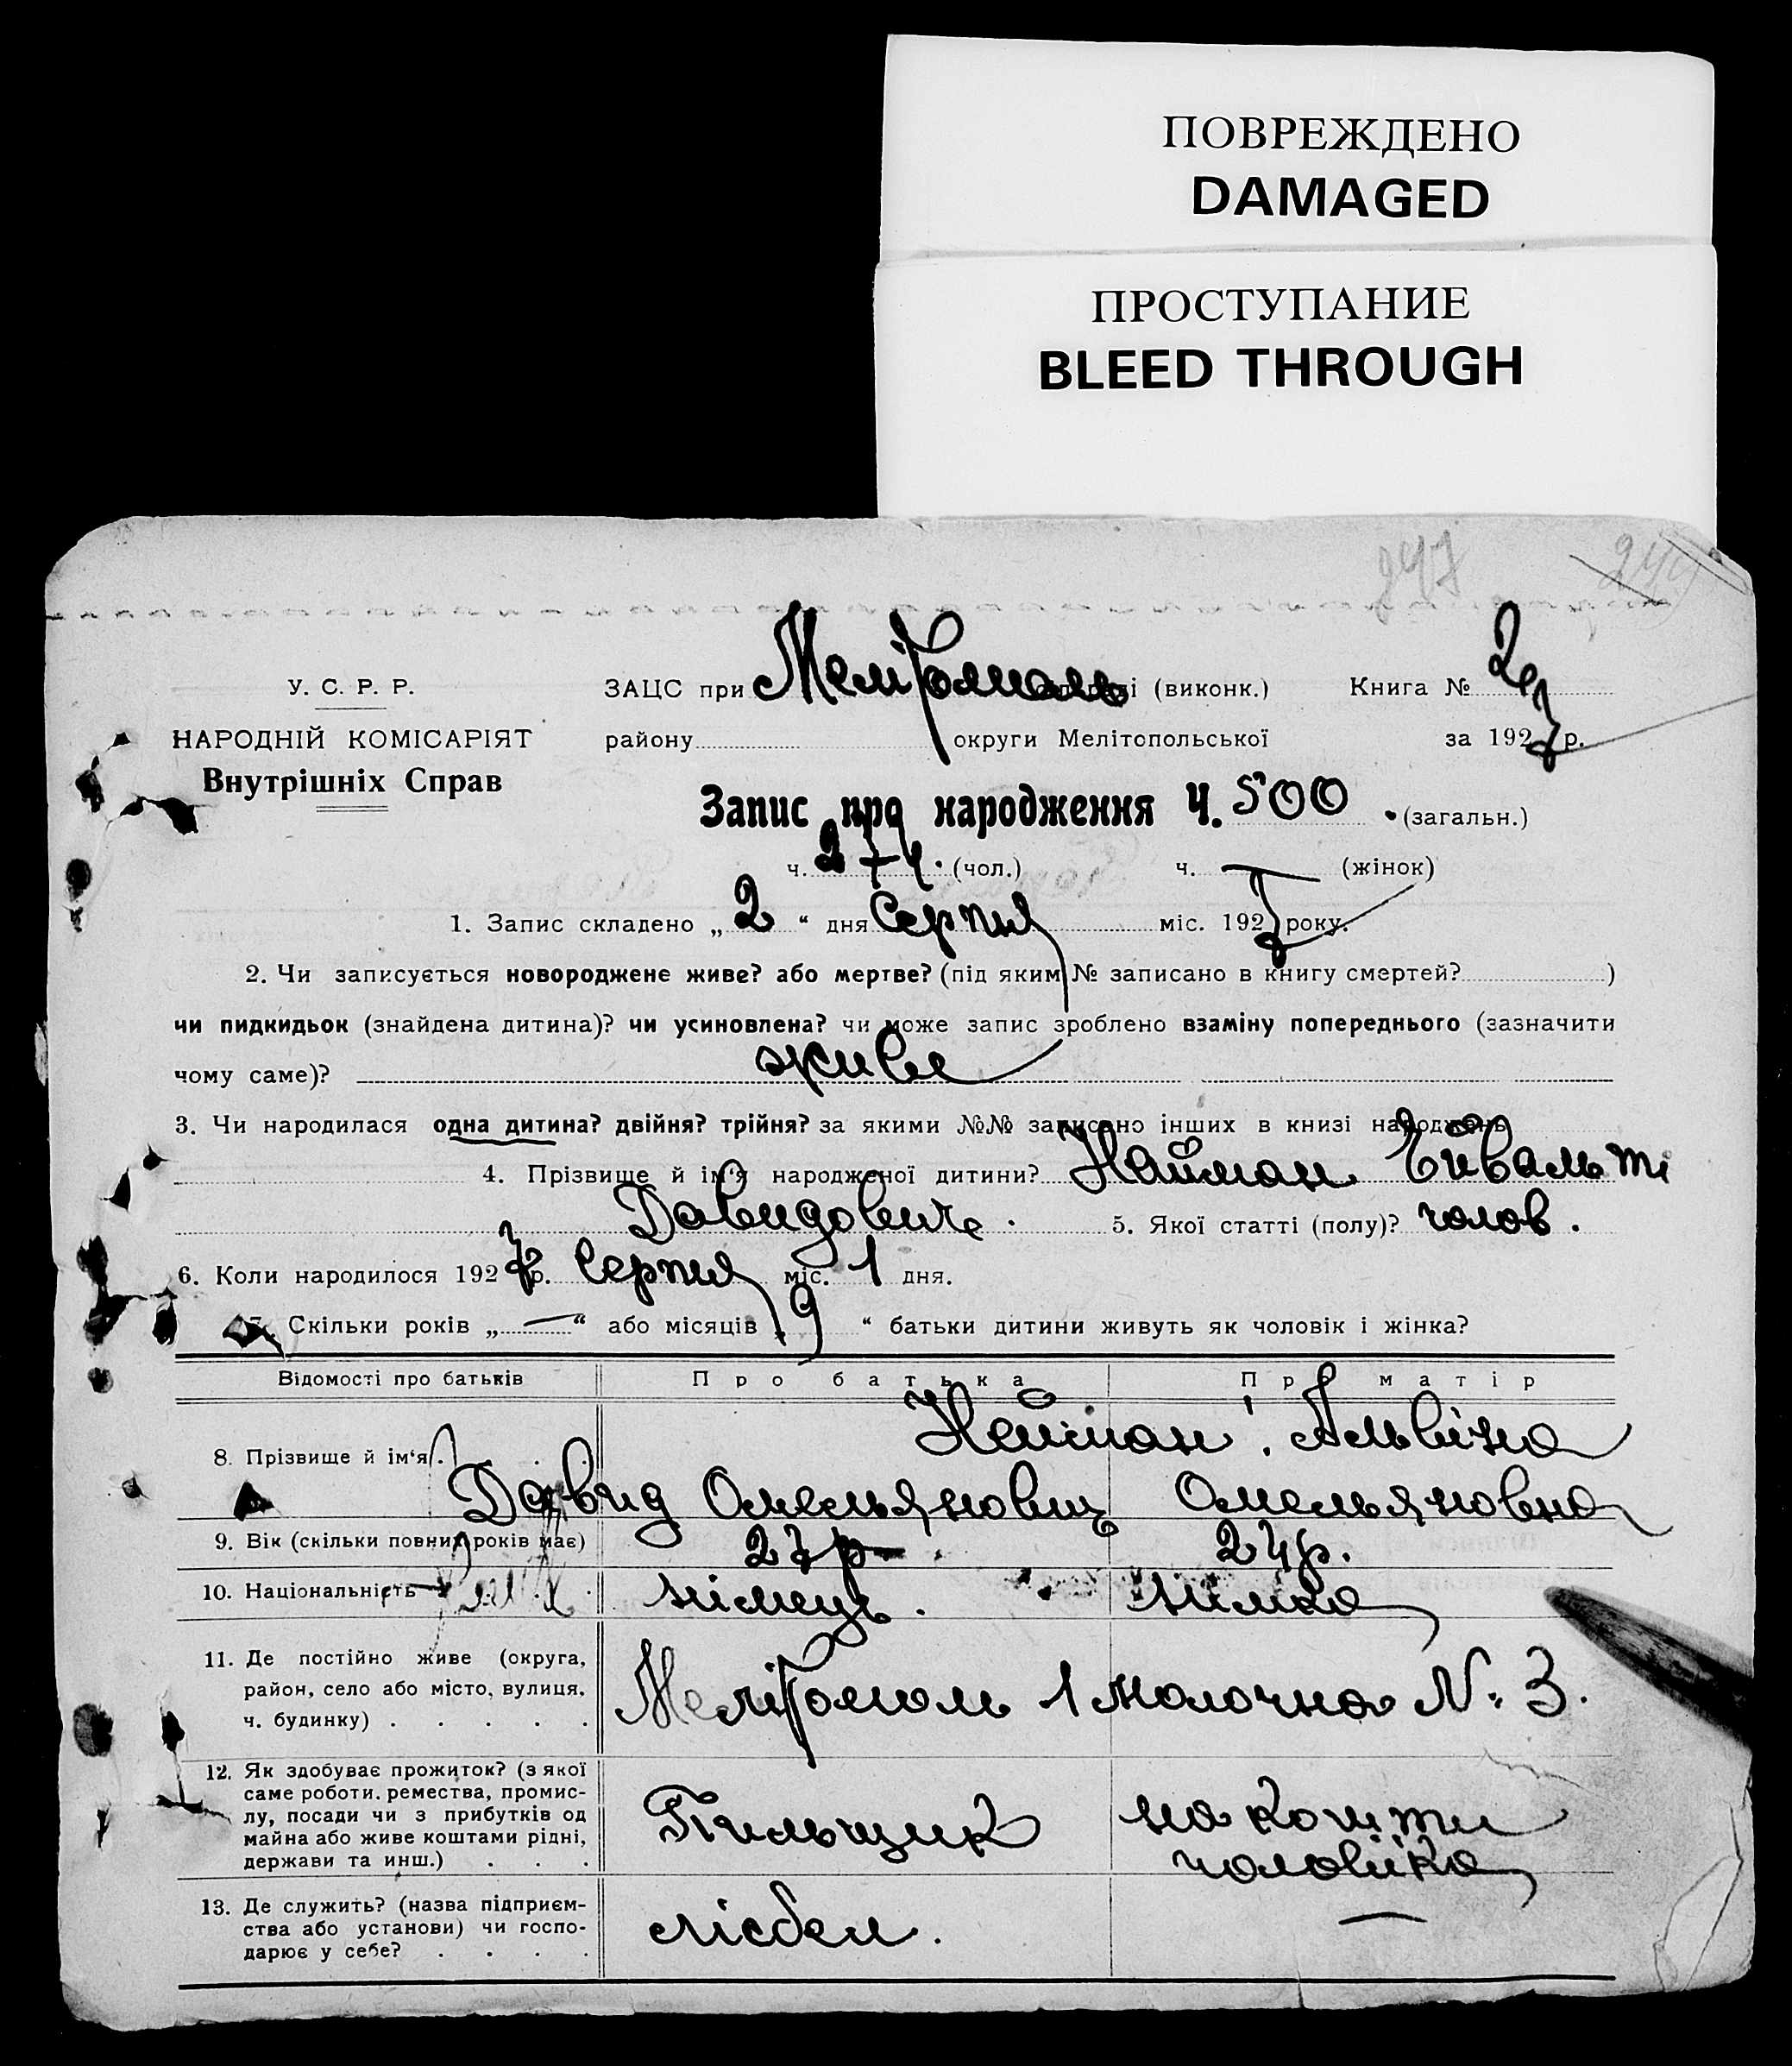 ПОВРЕЖДЕНО
DAMAGED
ПРОСТУПАНИЕ
BLEED THROUGH
247
У. С. Р. Р.
ЗАЦС при Мелітополь (виконк.) Книга № 2
НАРОДНІЙ КОМІСАРІЯТ
району округи Мелітопольської за 1927 р.
Внутрішніх Справ
Запис про народження Ч. 500 (загальн.)
ч. 274. (чол.) ч. — (жінок)
1. Запис складено „ 2 “ дня Серпня міс. 1927 року.
2. Чи записується новороджене живе? або мертве? (під яким № записано в книгу смертей? )
чи пидкидьок (знайдена дитина)? чи усиновлена? чи може запис зроблено взаміну попереднього (зазначити
чому саме)? живе
3. Чи народилася одна дитина? двійня? трійня? за якими №№ записано інших в книзі народжень
4. Прізвище й ім‘я народженої дитини? Найман
Давидович. 5. Якої статті (полу)? чолов.
6. Коли народилося 1927 р. Серпня міс. 1 дня.
7. Скільки років „ — “ або місяців „ 9 “ батьки дитини живуть як чоловік і жінка?
Відомості про батьків Про батька Про матір
8. Прізвище й ім‘я. Найман Альвіна
Давид Омельянович Омельяновна
9. Вік (скільки повних років має) 27 р. 24 р.
10. Національність німець. німка
11. Де постійно живе (округа,
район, село або місто, вулиця,
ч. будинку) . . . . . Мелітополь 1 Молочна № 3.
12. Як здобуває прожиток? (з якої
саме роботи, ремества, промис-
лу, посади чи з прибутків од
майна або живе коштами рідні,
держави та инш.) . . . Пильщик на кошти
чоловіка
13. Де служить? (назва підприєм-
ства або установи) чи госпо-
дарює у себе? . . . . —